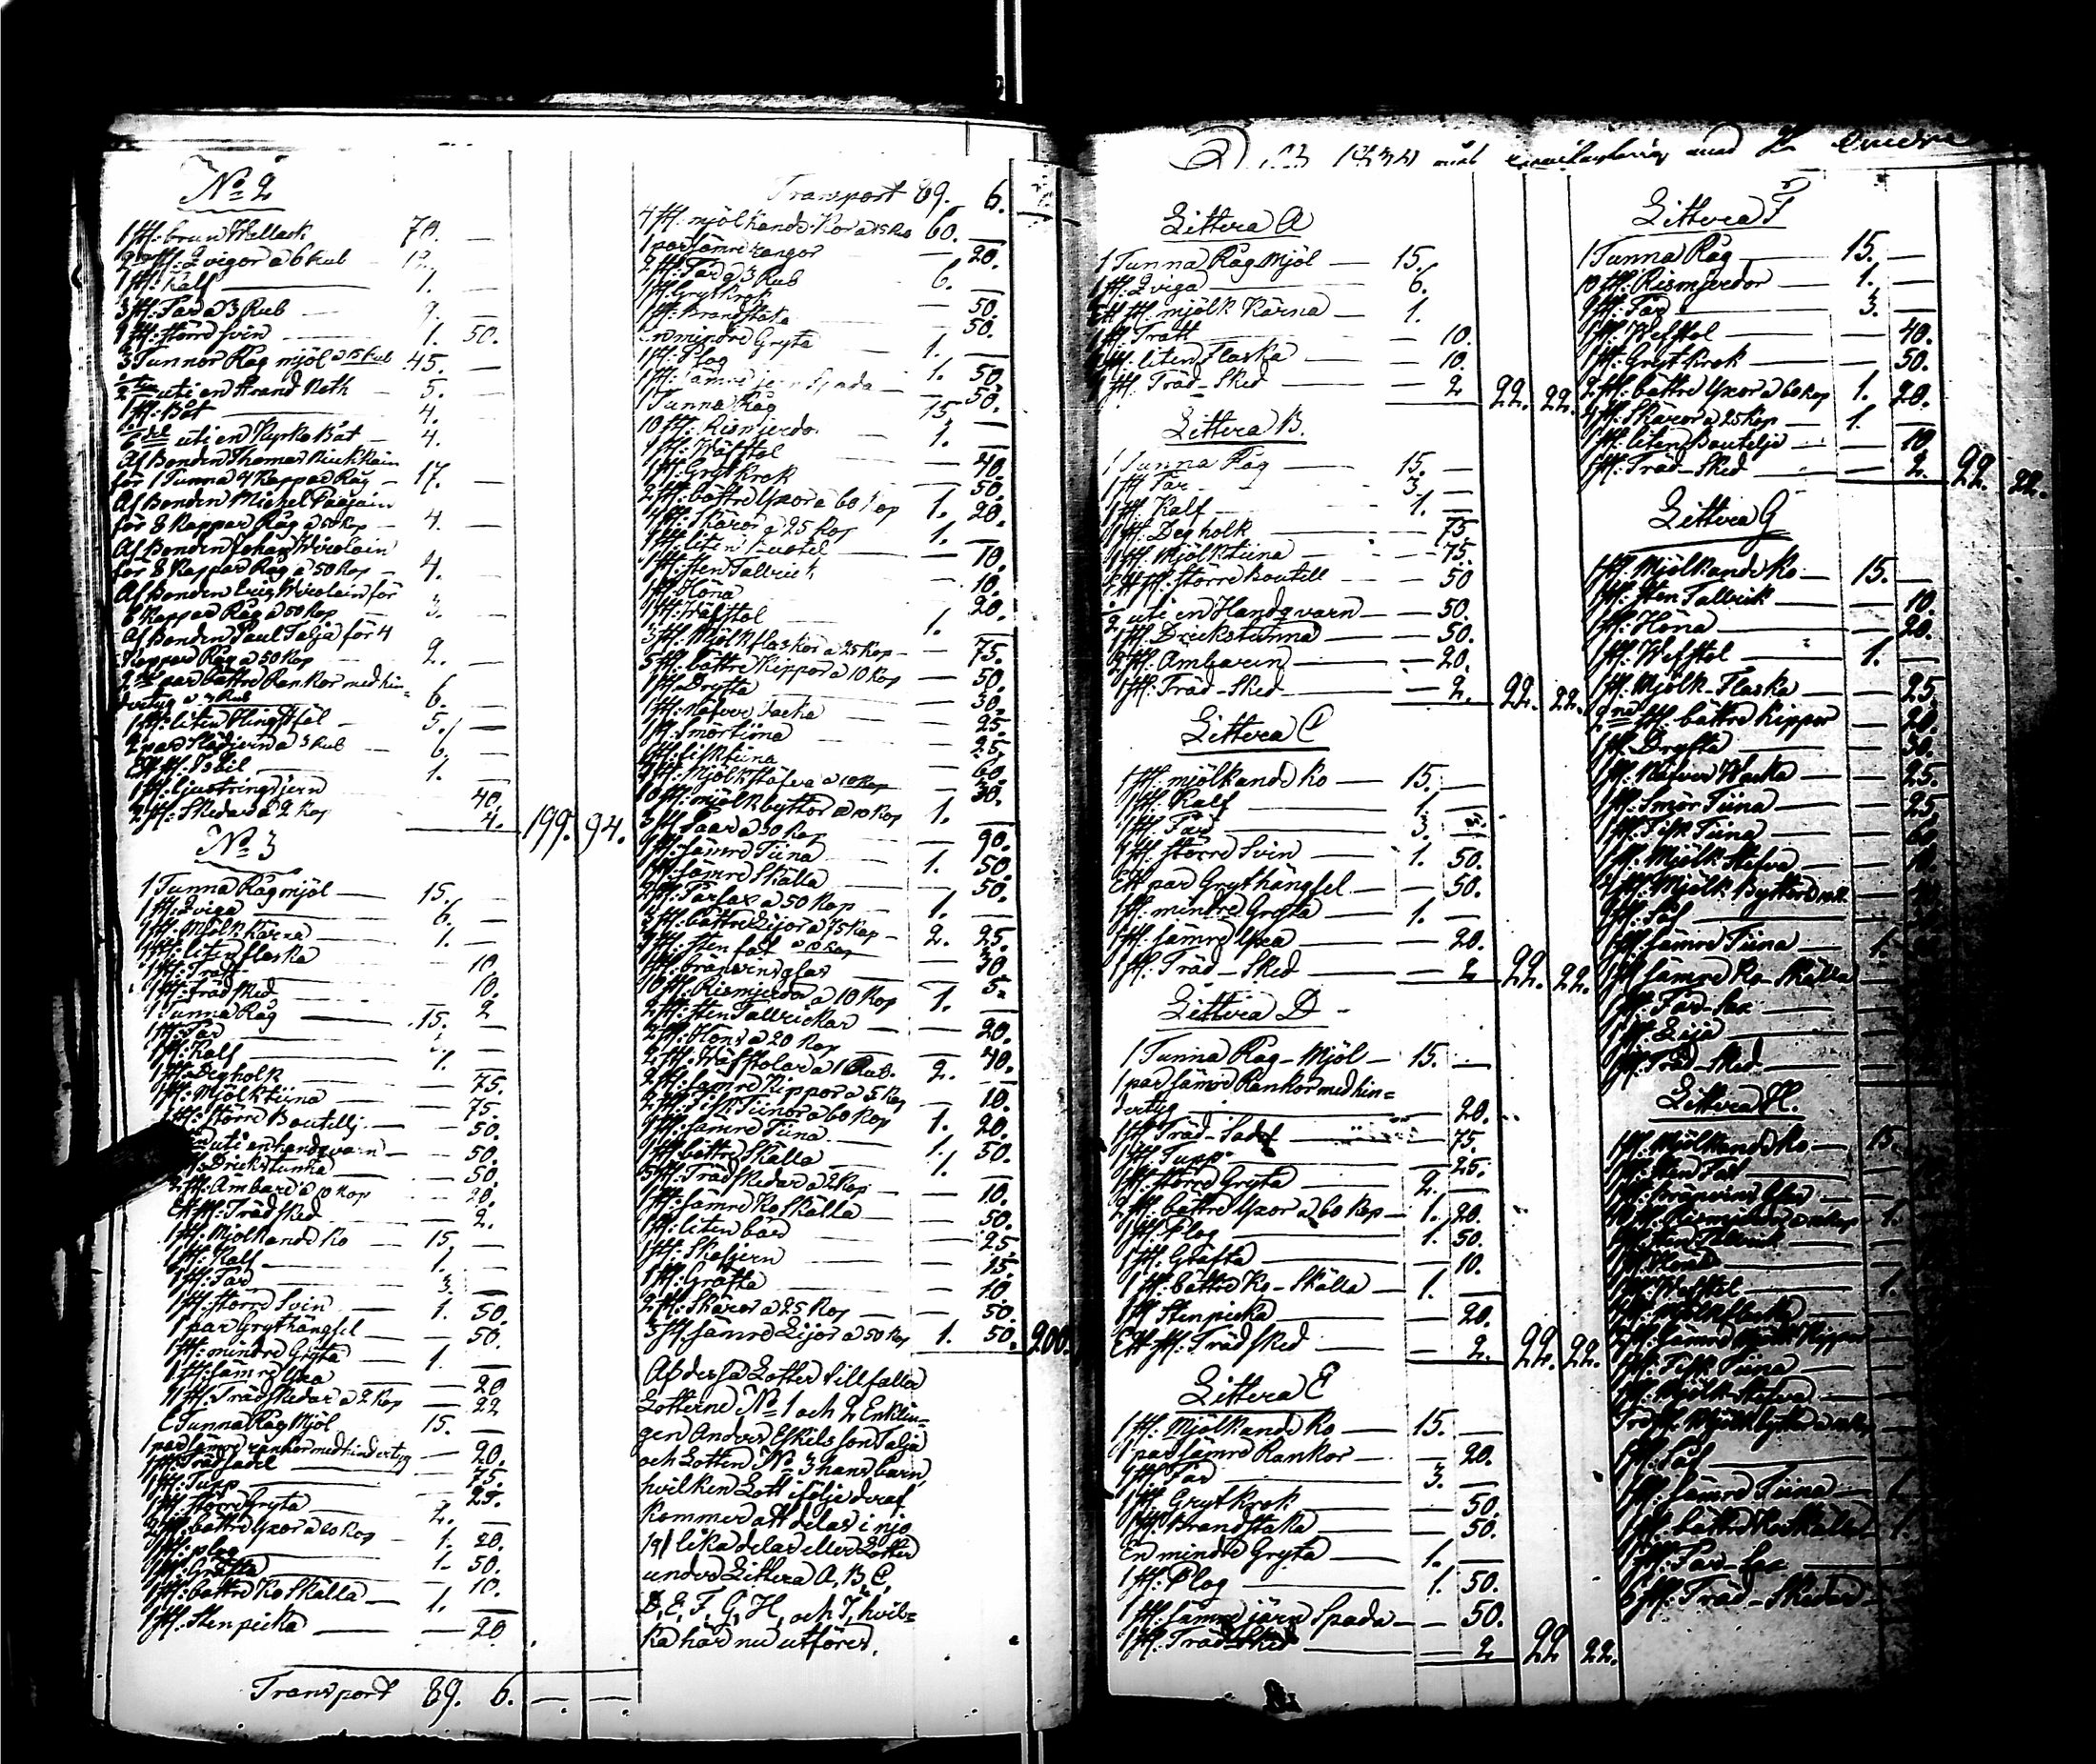 No 2
1 st: brun Wallack 70. —
2 st: Qvigor a 6 Rub — 12. —
1 st: Kalf — 1. —
3 st: Får a 3 Rub — 9. —
1 st: större svin — 1. 50.
3 Tunnor Råg mjöl a 15 Rub 45. —
uti en Strand Noth — 5. —
1 st: Båt — 4. —
uti en Kyrko Båt — 4. —
Af Bonden Thomas
för 1 Tunna 4 Kappar Råg — 17. —
Af Bonden Michel Paajain
för 8 Kappar Råg a 50 Kop — 4. —
Af Bonden Johan Wirolain
för 8 Kappar Råg a 50 Kop — 4. —
Af Bonden Erig Wirolain för
6 Kappar Råg a 50 Kop — 3. —
Af Bonden Paul Talja för 4
Kappar Råg a 50 Kop — 2. —
2 par bättre Rankor med hin=
dertyg a 3 Rub — 6. —
1 st: liten Hingstföl — 5. —
2 par Slädjern a 3 Rub — 6. —
Ett st: Isbil — 1. —
1 st: ljustringsjern — 40.
2 st: Skedar a 2 Kop — 4. 199. 94.
No 3
1 Tunna Rågmjöl — 15. —
1 st: Qviga — 6. —
1 st: Mjölk Kärna — 1. —
1 st: liten flaska — 10
1 st: Tratt — 10.
1 st: Träd sked — 2
1 Tunna Råg — 15. —
1 st: Får — 3. —
1 st: Kalf — 1. —
1 st: Degholk — 75.
1 st: Mjölktiina — 75.
1 st: större Boutellj — 50.
uti en handqvarn — 50.
st: Drickstunna — 50.
2 st: Ambare a 10 Kop — 20.
Ett st: Träd sked — 2.
1 st: Mjölkande Ko — 15 —
1 st: Kalf — 1. —
1 st: Får — 3. —
1 st: större Svin — 1. 50.
1 par Grythängsel — 50.
1 st: mindre Gryta — 1. —
1 st: sämre Yxa — 20
11 st: Trädskedar a 2 Kop — 22
E Tunna Råg Mjöl 15. —
1 par sämre rankor med hindertyg — 20.
1 st: Trädsadel — 75
1 st: Tupp — 25.
1 st: större Gryta — 2. —
2 st: bättre Yxor a 60 Kop — 1. 20.
1 st: plog — 1. 50.
1 st: Gräfta — 10.
1 st: bättre Ko Skälla — 1. —
1 st: Stenpicka — 20
Transport 89. 6. — —
Transport 89. 6.
4 st: mjölkande Kor a 15 Ro 60. —
1 par sämre rangor — 20.
2 st: Får a 3 Rub 6. —
1 st: Grytkrok — 50.
1 st: Brandstaka — 50.
En mindre Gryta — 1. —
1 st: Plog — 1. 50
1 st: Sämre jern Spada — 50.
1 Tunna Råg 15 —
10 st: Rismjerdor 1. —
1 st: Wäfstol — 40.
1 st: Grytkrok — 50.
2 st: bättre Yxor a 60 Kop 1. 20.
4 st: Skäror a 25 Kop 1. —
1 st: liten — 10.
1 st: Sten Tallrick — 10.
1 st: Höna — 20.
1 st: Wäfstol 1. —
3 st: Mjölkflaskor a 25 Kop — 75.
5 st: bättre Kippor a 10 Kop — 50.
1 st: Dryfta — 30.
1 st: Näfver — 25.
1 st: Smörtiina — 25.
1 st: fisktiina — 60.
3 st: Mjölkstäfva a 10 Kop — 30.
10 st: mjölkbyttor a 10 Kop 1. —
3 st: Såar a 30 Kop — 90.
1 st: sämre Tiina — 1. 50.
1 st: sämre Skälla — 50.
2 st: Fårsax a 50 Kop — 1. —
3 st: bättre Lijor a 75 Kop — 2. 25.
st: Sten fat a Kop — 30
1 st: bränvins glas — 5.
10 st: Rismjerdor a 10 Kop 1. —
2 st: Sten Tallrickar — 20.
2 st: Höns a 20 Kop — 40.
2 st: Wäfstolar a 1 Rub. 2. —
2 st: sämre Kippor a 5 Kop — 10.
2 st: Fisk Tiinor a 60 Kop 1. 20.
1 st: sämre Tiina — 1. 50.
1 st: bättre Skälla — 1. —
5 st: Trädskedar a 2 Kop — 10.
1 st: sämre Ko skälla — 50.
1 st: liten — 25.
1 st: Skafjern — 15.
1 st: Gräfta — 10.
2 st: Skäror a 25 Kop — 50.
3 st: sämre Lijor a 50 Kop 1. 50. 200.
Af dessa Lotter tillfalla
Lotterne No 1 och 2 Enklin=
gen Anders Eskelsson Talja
och Lotten No 3 hans barn,
hvilken Lott i följe deraf
kommer att delas i njo
/9/ lika delar eller Lotter
under Littera A, B, C,
D, E, F, G, H, och I, hvil=
ka här nu utföres.
Littera A
1 Tunna Råg Mjöl — 15. —
1 st: Qviga — 6. —
Ett st: mjölk Kärna — 1.
1 st: Tratt — 10.
1 st: liten Flaska — 10.
1 st: Träd-Sked — 2 22. 22.
Littera B.
1 Tunna Råg — 15. —
1 st: Får — 3. —
1 st: Kalf — 1. —
1 st: Degholk — 75
1 st: Mjölktiina — 75.
Ett st: större Boutell — 50
1/2 uti en Handqvarn — 50.
1 st: Drickstunna — 50.
2 st: Ambaren — 20.
1 st: Träd-Sked — 2. 22. 22.
Littera C
1 st: mjölkande Ko — 15. —
1 st: Kalf — 1. —
1 st: Får — 3. —
1 st: större Svin — 1. 50.
Ett par Grythängsel — 50.
1 st: mindre Gryta — 1. —
1 st: sämre Yxa — 20.
1 st: Träd-Sked — 2 22. 22.
Littera D
1 Tunna Råg-Mjöl — 15. —
1 par sämre Rankor med hin=
dertyg — 20.
1 st: Träd-Sadel — 75.
1 st: Tupp — 25.
1 st: större Gryta — 2. —
2 st: bättre Yxor a 60 Kop — 1. 20.
1 st: Plog — 1. 50.
1 st: Gräfta — 10.
1 st: bättre Ko-Skälla — 1. —
1 st: Stenpicka — 20.
Ett st: Träd sked — 2. 22. 22.
Littera E
1 st: Mjölkande Ko — 15. —
1 par sämre Rankor — 20.
1 st: Får — 3. —
1 st: Grytkrok — 50.
1 st: Brandstaka — 50.
En mindre Gryta — 1. —
1 st: Plog — 1. 50.
1 st: sämre järn Spada — 50.
1 st: Träd-Sked — 2 22 22.
Littera F
1 Tunna Råg — 15. —
10 st: Rismjerdor — 1. —
1 st: Får — 3. —
1 st: Wefstol — 40.
1 st: Grytkrok — 50.
2 st: bättre Yxor a 60 Kop 1. 20.
4 st: Skäror a 25 Kop — 1. —
1 st: liten Boutelje — 10
1 st: Träd-Sked — 2. 22. 22.
Littera G
1 st: Mjölkande Ko — 15. —
1 st: Sten Tallrick — 10.
1 st: Höna — 20.
1 st: Wefstol — 1. —
1 st: Mjölk-Flaska — 25.
st: bättre Kippor — 20.
1 st: Dryfta — 30.
1 st: Näfver — 25.
1 st: Smör Tiina — 25
1 st: Fisk Tiina — 60
1 st: Mjölk Stäfva — 10.
st: Mjölk Byttor
1 st: Så
1 st: sämre Tiina — 1.
1 st: sämre Ko-Skälla
1 st: Får-Sax
1 st: Lija
1 st: Träd-Sked
Littera H.
1 st: Mjölkande Ko — 15
st: Sten Fat
1 st: bränvins Glas
10 st: Rismjerdor 1.
1 st: Sten Tallrick
1 st: Wefstol — 1.
1 st: Mjölkflaska
st: sämre
1 st: Fisk Tiina
1 st: Mjölk-Stäfva
st: Mjölk byttor
1 st: Så
1 st: sämre Tiina
1 st: bättre Ko Skälla
1 st: Får Sax
st: Träd-Skedar